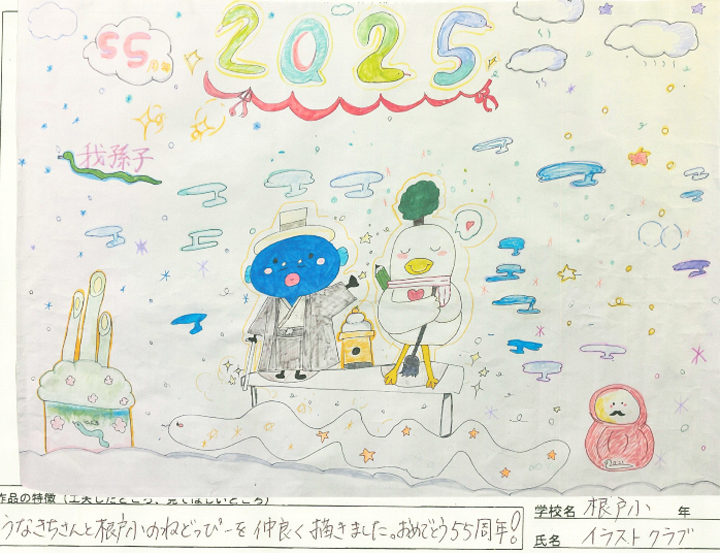 2025
55
周年
我孫子
作品の特徴（工夫したところ、見てほしいところ）
うなきちさんと根戸小のねどっぴーを仲良く描きました。おめでとう55周年!!
学校名 根戸小 年
氏名 イラストクラブ